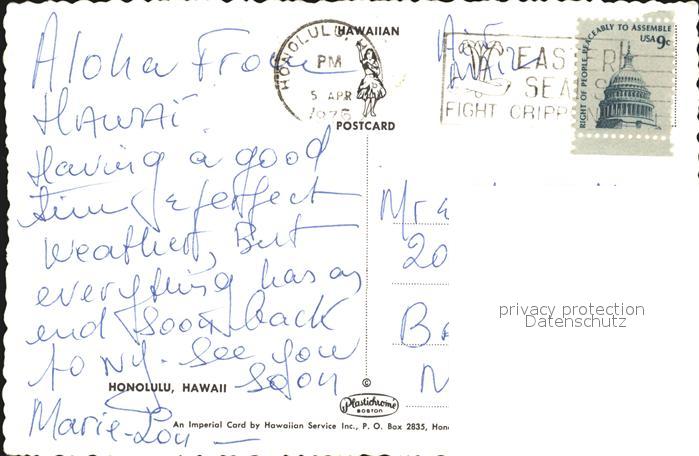 Aloha From
HAWAI
Having a good
time & perfect
weather, But
everything has an
end soon back
to NY. See you
soon
Marie-Lou
HAWAIIAN
HONOLULU,
PM
5 APR
1976
POSTCARD
Air
EASTER
SEA
FIGHT CRIPP
RIGHT OF PEOPLE PEACEABLY TO ASSEMBLE
USA 9c
Mr
20
B
N
privacy protection
Datenschutz
HONOLULU, HAWAII
©
Plastichrome
BOSTON
An Imperial Card by Hawaiian Service Inc., P. O. Box 2835, Hon